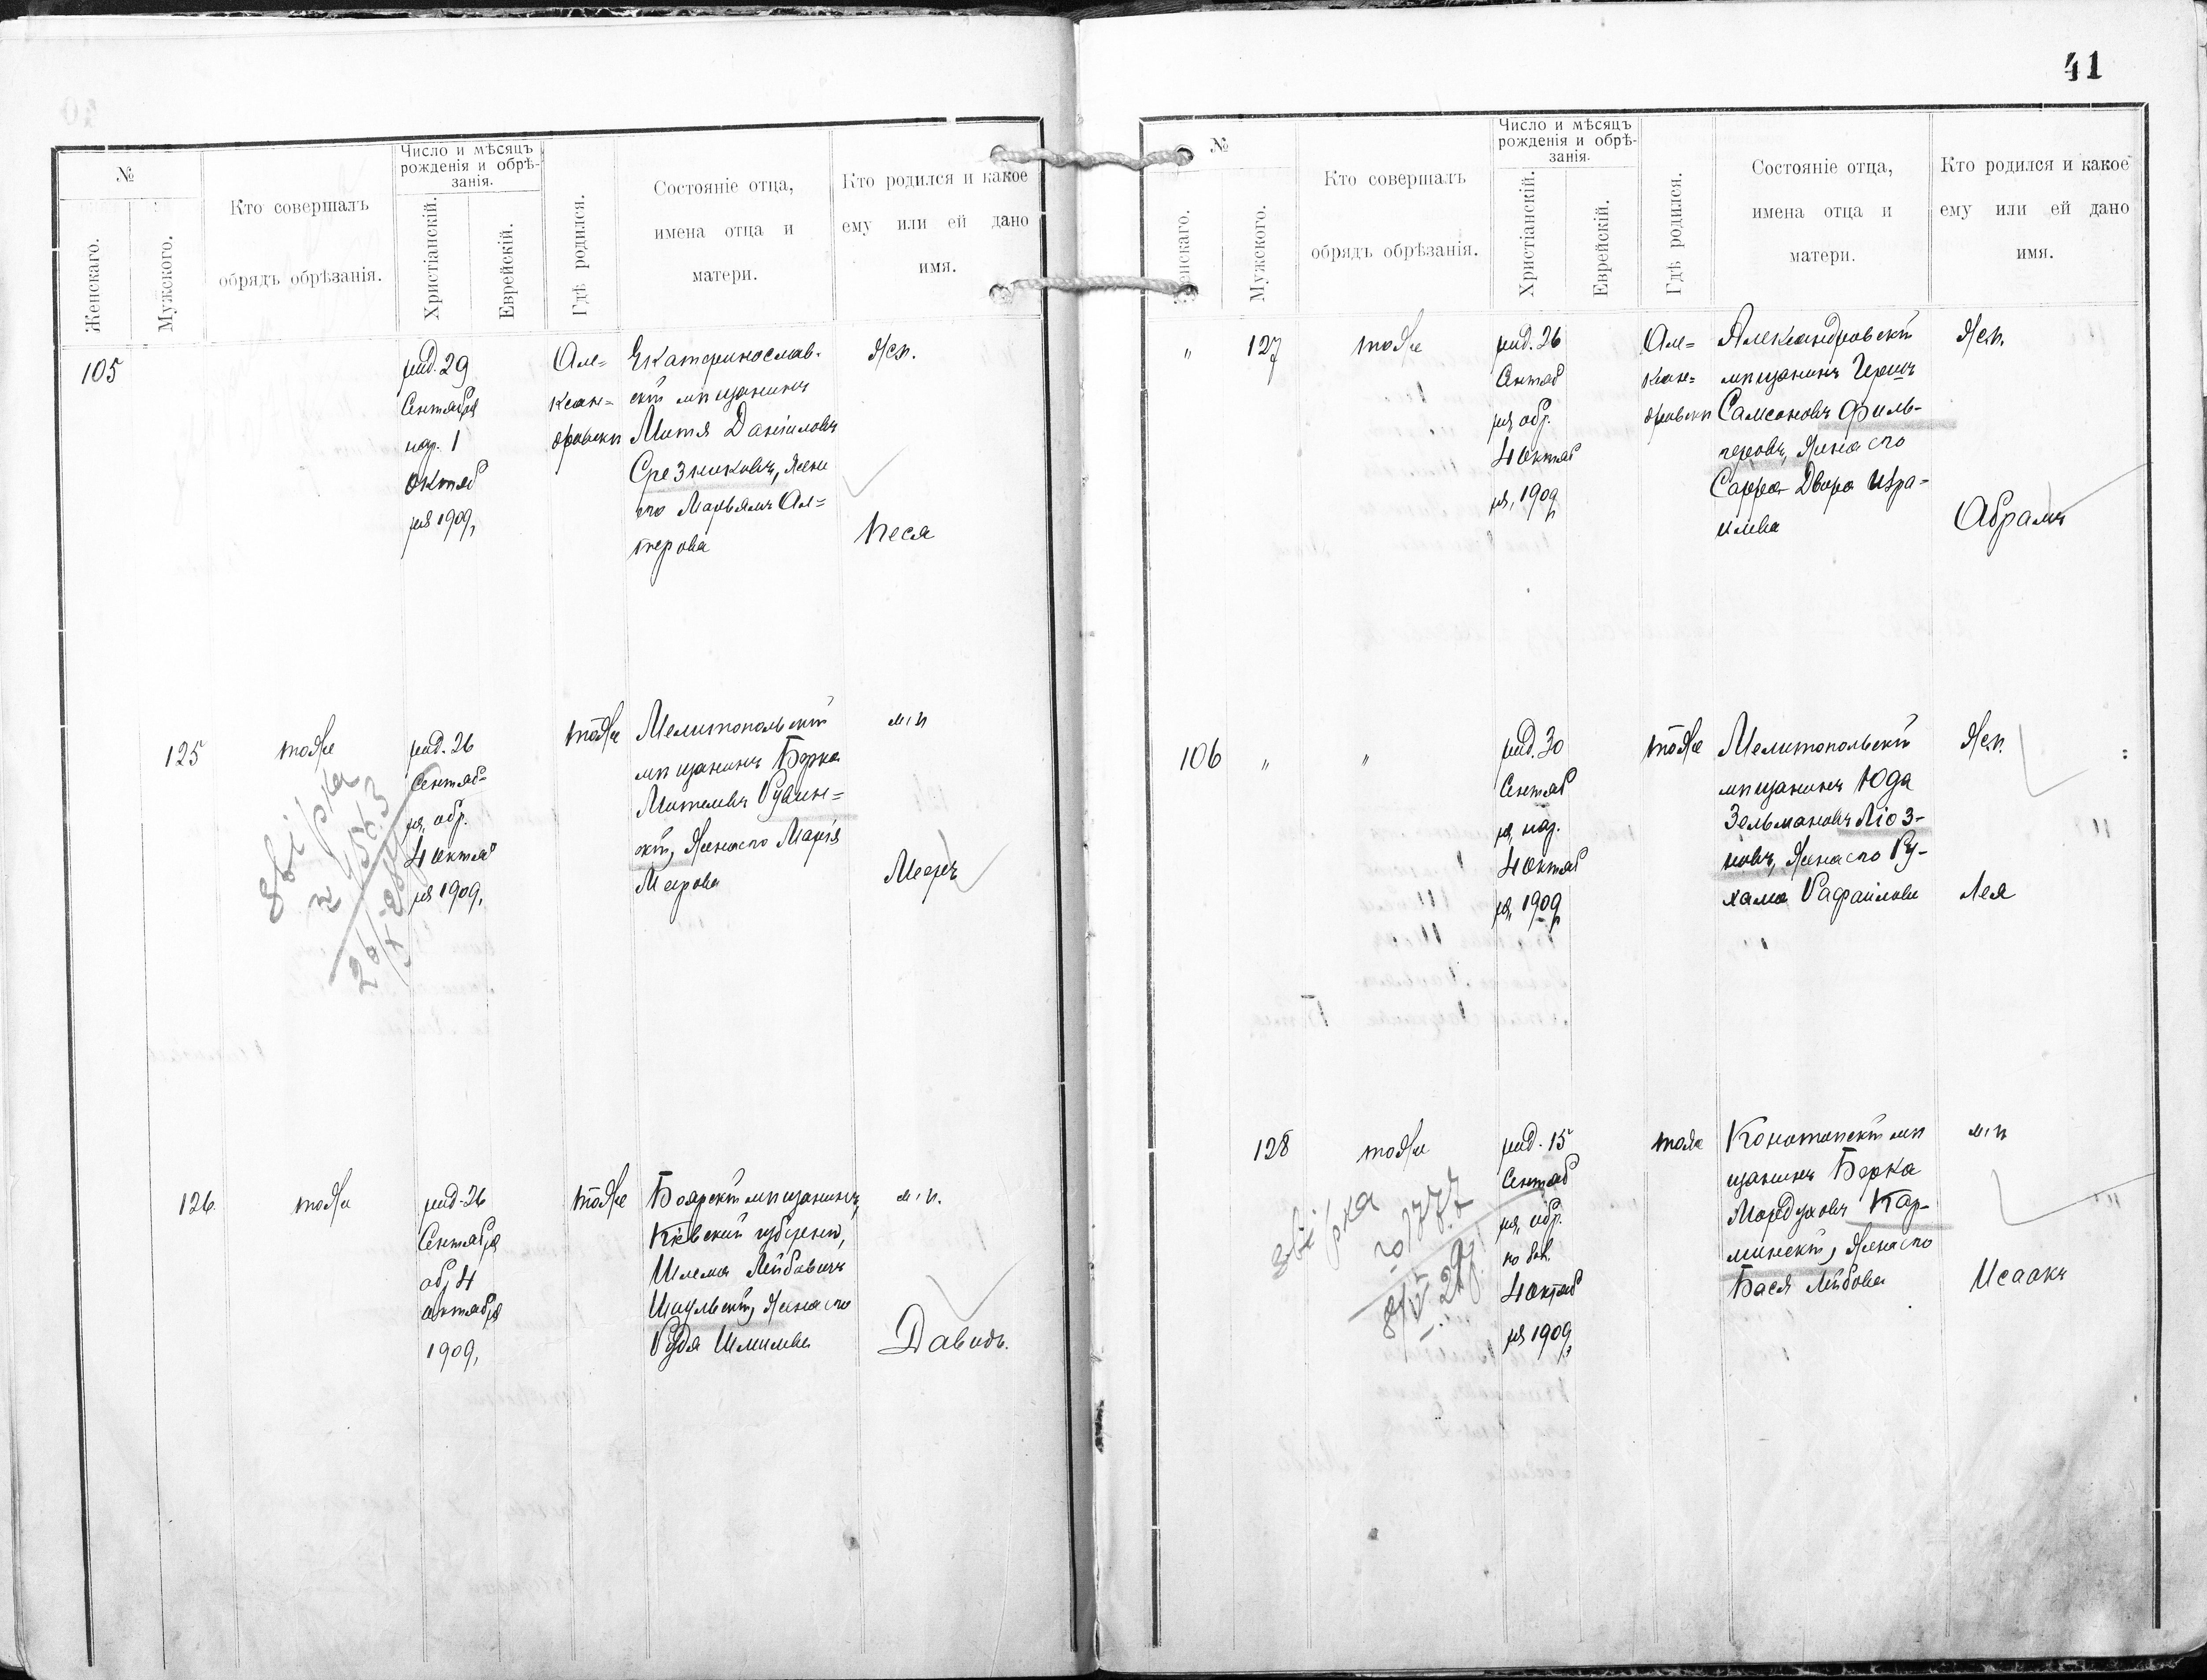 №
Женскаго.
Мужского.
Кто совершалъ
обрядъ обрѣзанія.
Число и мѣсяцъ
рожденія и обрѣ-
занія.
Христіанскій.
Еврейскій.
Гдѣ родился.
Состояніе отца,
имена отца и
матери.
Кто родился и какое
ему или ей дано
имя.
105
рид. 29
Сентября
нар. 1
Октяб
ря 1909,
Але=
ксан=
дровскѣ
Екатеринослав-
скій мѣщанинъ
Митя Даніиловъ
Срезниковъ, жена
его Марьямъ Ал=
терова
Жен.
Песя
125
тоже
рид. 26
Сентяб=
ря, обр.
4 октяб
ря 1909,
звірка
тоже
Мелитопольскій
мѣщанинъ Берка
скій, жена его Марія
Меерова
м. п.
Мееръ
126
тоже
рид 26
Сентября
обр 4
октября
1909,
тоже
Боярскій мѣщанинъ,
Кіевской губерніи,
Шлема Лейбовичъ
Шкульскій, жена его
Рудя Шмилева
м. п.
Давидъ.
41
№
Женскаго.
Мужского.
Кто совершалъ
обрядъ обрѣзанія.
Число и мѣсяцъ
рожденія и обрѣ-
занія.
Христіанскій.
Еврейскій.
Гдѣ родился.
Состояніе отца,
имена отца и
матери.
Кто родился и какое
ему или ей дано
имя.
" 127
тоже
рид. 26
ря, обр.
4 октяб
ря, 1909,
Але=
ксан=
дровскѣ
Александровскій
мѣщанинъ Гершъ
Самсоновъ Филь-
черовъ, жена его
Сарра-Двора Изра-
илева
Жен.
Абрамъ
106 "
"
рид. 30
Сентяб
ря, нар.
4 октяб
ря, 1909,
тоже
Мелитопольскій
мѣщанинъ Юда
Зельмановъ Ліоз-
новъ, жена его Ру-
хама Рафаилова
Жен.
Лея
128
тоже
рид. 15
Сентяб
ря, обр.
по бол.
4 октяб
ря 1909,
звірка
тоже
Конотопскій мѣ
щанинъ Берка
Мордуховъ Кар-
минскій, жена его
Бася Лейбова
м. п.
Исаакъ